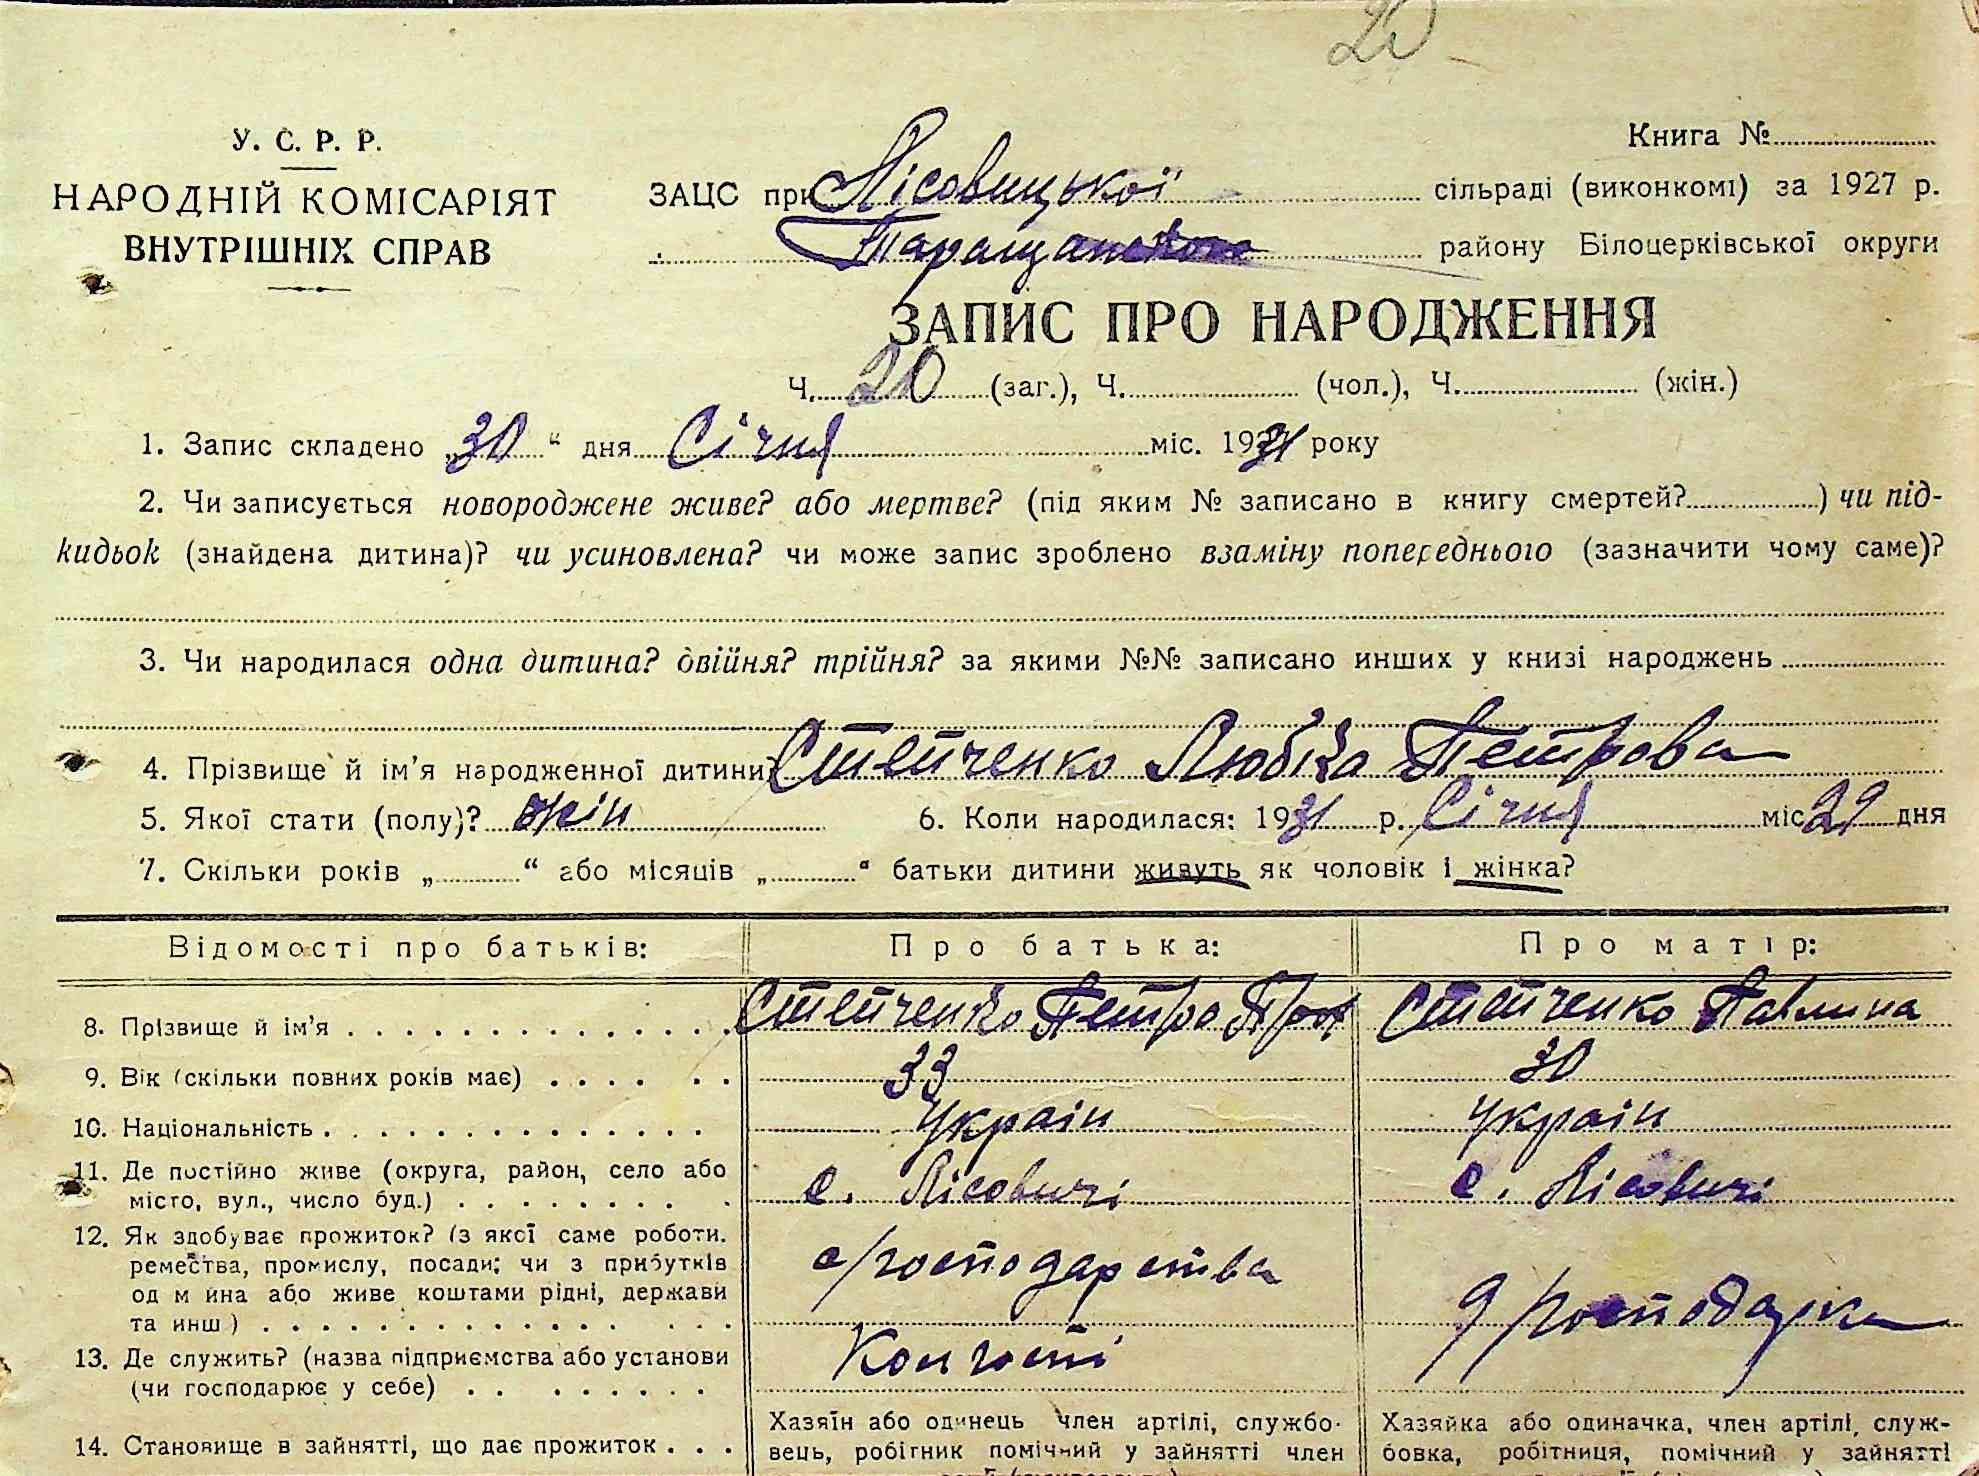 20
У. С. Р. Р.
НАРОДНІЙ КОМІСАРІЯТ
ВНУТРІШНІХ СПРАВ
Книга №
ЗАЦС при Лісовицької сільраді (виконкомі) за 1927 р.
Таращанського району Білоцерківської округи
ЗАПИС ПРО НАРОДЖЕННЯ
Ч. 20 (заг.), Ч. (чол.), Ч. (жін.)
1. Запис складено „30“ дня Січня міс. 1931 року
2. Чи записується новороджене живе? або мертве? (під яким № записано в книгу смертей? ) чи під-
кидьок (знайдена дитина)? чи усиновлена? чи може запис зроблено взаміну попереднього (зазначити чому саме)?
3. Чи народилася одна дитина? двійня? трійня? за якими №№ записано инших у книзі народжень
4. Прізвище й ім’я народженної дитини? Степченко Любка Петрова
5. Якої стати (полу)? жін 6. Коли народилася: 1931 р. Січня міс 29 дня
7. Скільки років „ “ або місяців „ “ батьки дитини живуть як чоловік і жінка?
Відомості про батьків: Про батька: Про матір:
8. Прізвище й ім’я Степченко Петро Степченко Павлина
9. Вік (скільки повних років має) 33 30
10. Національність Украін Украін
11. Де постійно живе (округа, район, село або
місто, вул., число буд.) с. Лісовичі с. Лісовичі
12. Як здобуває прожиток? (з якої саме роботи.
ремества, промислу, посади; чи з прибутків
од м йна або живе коштами рідні, держави
та инш) с/господарства д/господарка
13. Де служить? (назва підприємства або установи
(чи господарює у себе)
14. Становище в зайнятті, що дає прожиток
Хазяїн або одинець член артілі, службо-
вець, робітник помічний у зайнятті член
Хазяйка або одиначка, член артілі, служ-
бовка, робітниця, помічний у зайнятті